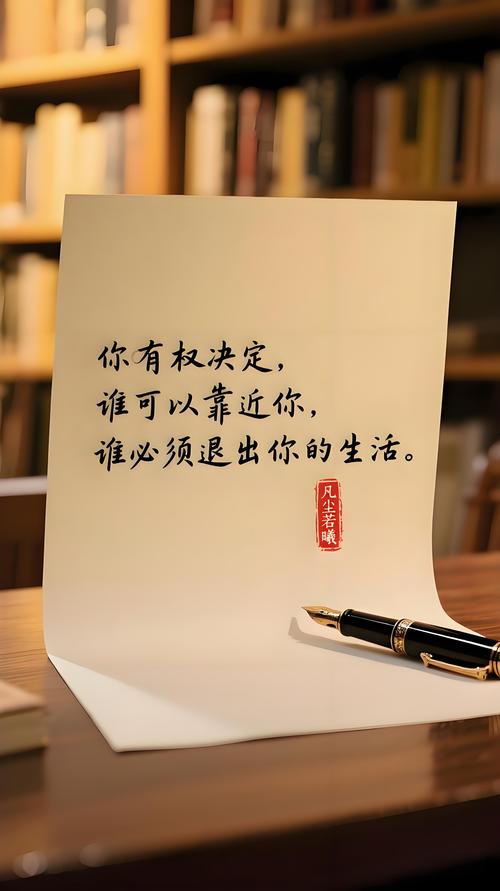 你有权决定，
谁可以靠近你，
谁必须退出你的生活。
凡尘若曦